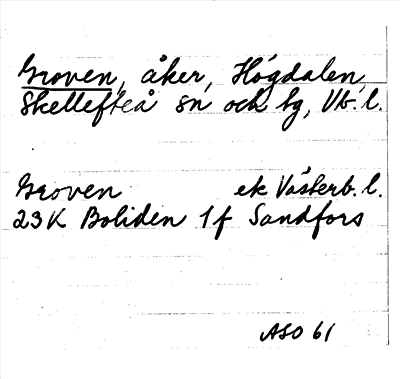 Groven, åker, Högdalen,
Skellefteå sn och tg, Vb. l.
Groven ek Västerb. l.
23K Boliden 1f Sandfors
ASO 61